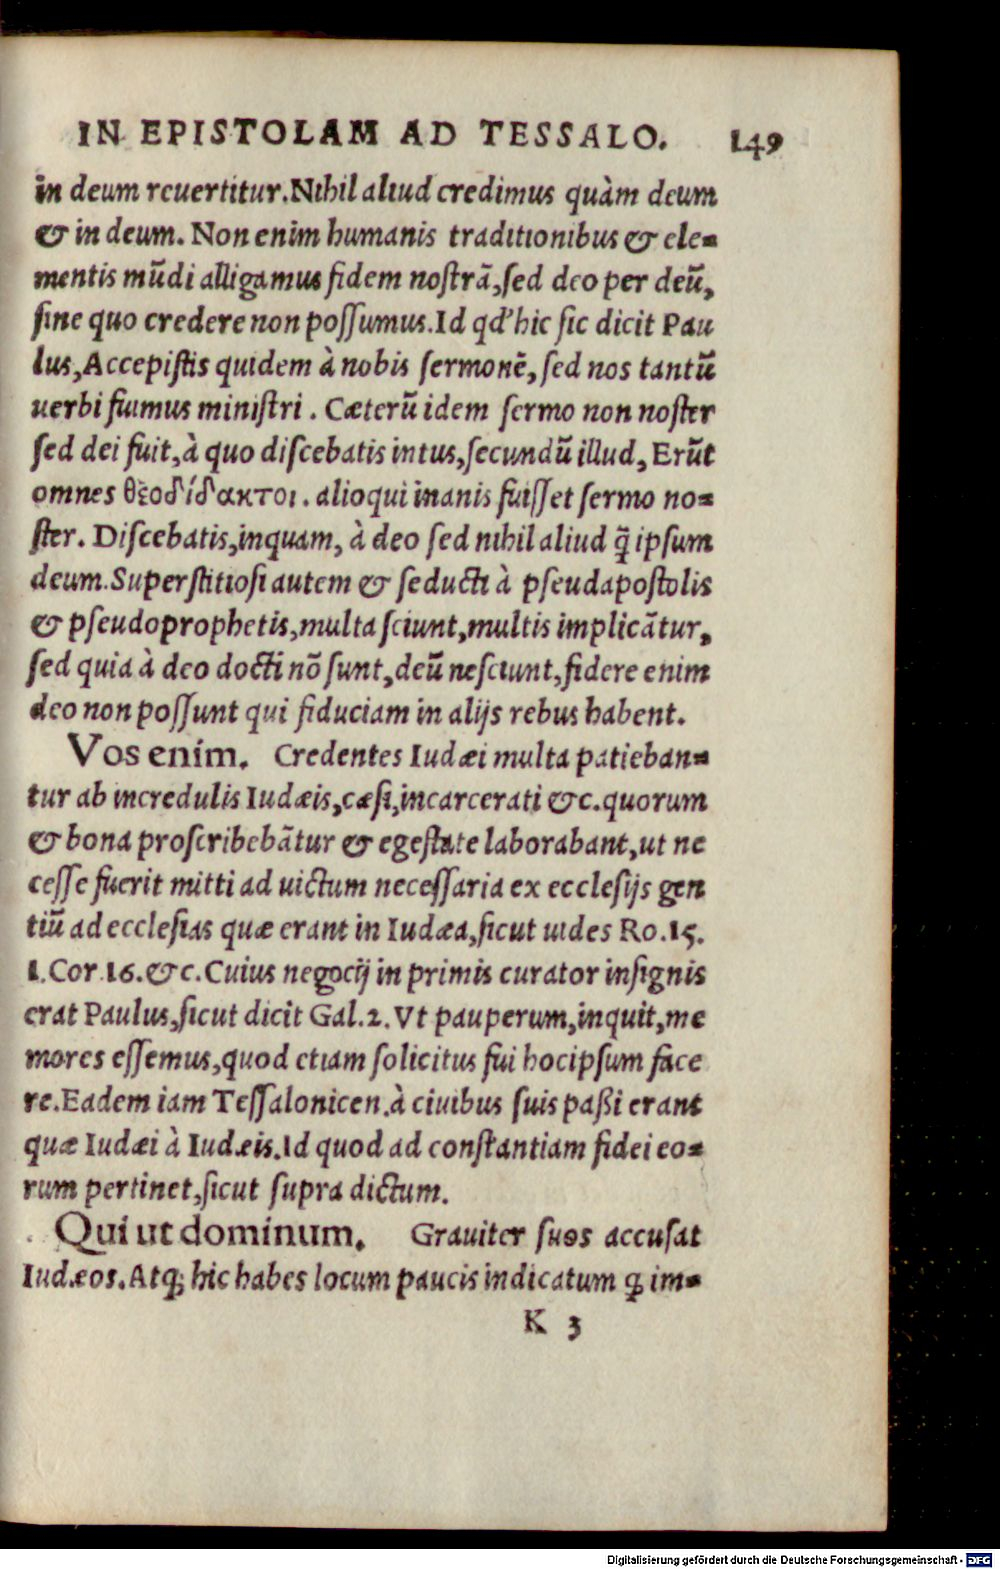 IN EPISTOLAM AD TESSALO. 149
in deum reuertitur. Nihil aliud credimus quàm deum
& in deum. Non enim humanis traditionibus & ele-
mentis mũdi alligamus fidem noſtrã, ſed deo per deũ,
ſine quo credere non poſſumus. Id qd' hic ſic dicit Pau
lus, Accepiſtis quidem à nobis ſermonẽ, ſed nos tantũ
uerbi fuimus miniſtri. Cæterũ idem ſermo non noſter
ſed dei fuit, à quo diſcebatis intus, ſecundũ illud, Erũt
omnes θεοδίδακτοι. alioqui inanis fuiſſet ſermo no-
ſter. Diſcebatis, inquam, à deo ſed nihil aliud q̃ ipſum
deum. Superſtitioſi autem & ſeducti à pſeudapoſtolis
& pſeudoprophetis, multa ſciunt, multis implicãtur,
ſed quia à deo docti nõ ſunt, deũ neſciunt, fidere enim
deo non poſſunt qui fiduciam in alijs rebus habent.
Vos enim. Credentes Iudæi multa patieban-
tur ab incredulis Iudæis, cæſi, incarcerati &c. quorum
& bona proſcribebãtur & egeſtate laborabant, ut ne
ceſſe fuerit mitti ad uictum neceſſaria ex eccleſijs gen
tiũ ad eccleſias quæ erant in Iudæa, ſicut uides Ro. 15.
1. Cor. 16. &c. Cuius negocij in primis curator inſignis
erat Paulus, ſicut dicit Gal. 2. Vt pauperum, inquit, me
mores eſſemus, quod etiam ſolicitus fui hocipſum face
re. Eadem iam Teſſalonicen. à ciuibus ſuis paßi erant
quæ Iudæi à Iudæis. Id quod ad conſtantiam fidei eo-
rum pertinet, ſicut ſupra dictum.
Qui ut dominum. Grauiter ſuos accuſat
Iudæos. Atq; hic habes locum paucis indicatum ꝙ im-
K 3
Digitalisierung gefördert durch die Deutsche Forschungsgemeinschaft - DFG